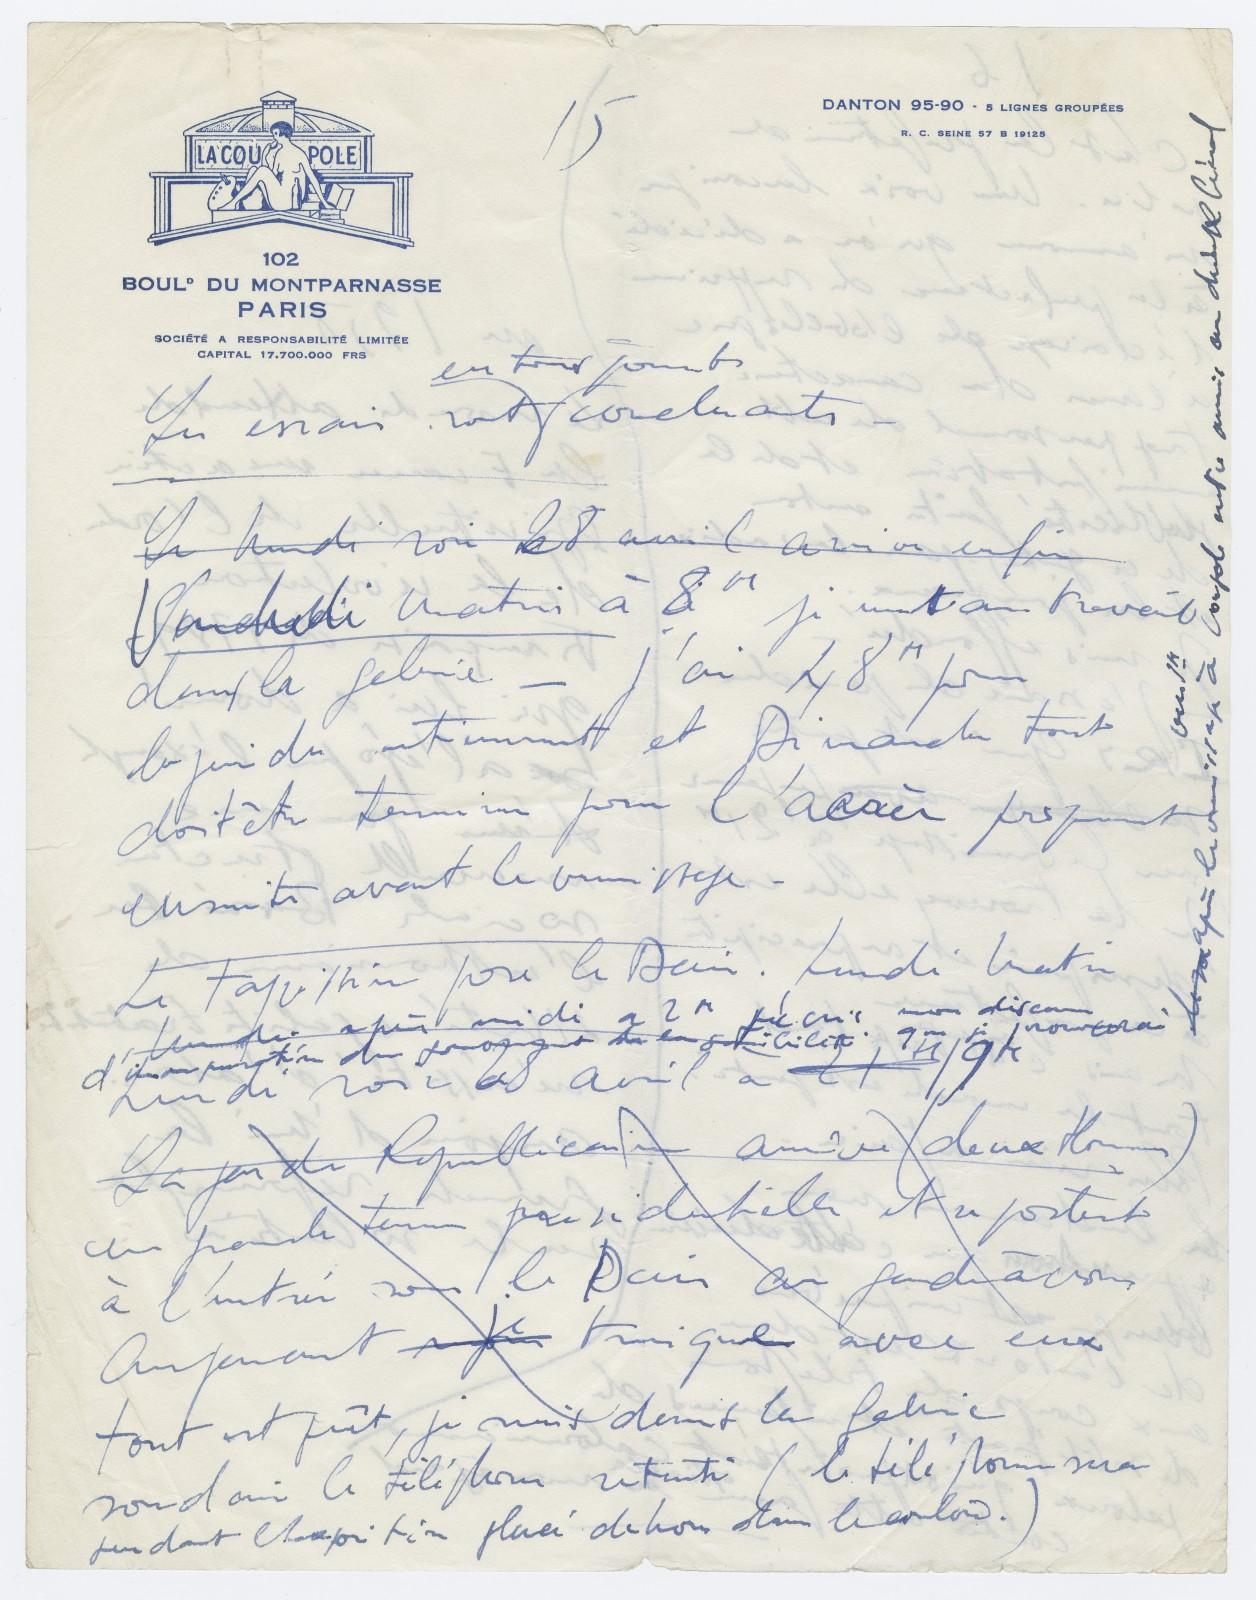 LA COUPOLE
102
BOULD DU MONTPARNASSE
PARIS
SOCIÉTÉ A RESPONSABILITÉ LIMITÉE
CAPITAL 17.700.000 FRS
15
DANTON 95-90 - 5 LIGNES GROUPÉES
R. C. SEINE 57 B 19125
en tous points
Les essais sont concluants -
Le lundi soir 28 avril arrive enfin
Vendredi matin à 8H je met au travail
dans la galerie - j'ai 48H pour
la peindre entièrement et Dimanche tout
doit être terminé pour l'accès
ensuite avant le vernissage -
Le Tapissier pose le Dais. Lundi matin
Lundi après midi a 2H j'écris mon discours
d'inauguration du sensibilité
Lundi soir 28 avril a 21H 9H
La garde Républicaine arrive (deux Hommes)
en grande tenue présidentielle et se postent
à l'entrée sous le Dais au garde à vous
Auparavant je trinque avec eux
tout est prêt, je suis dans la Galerie
soudain le téléphone retentit (le téléphone sera
pendant l'exposition placé dehors dans le couloir.)
après le vernissage à Coupole entre amis